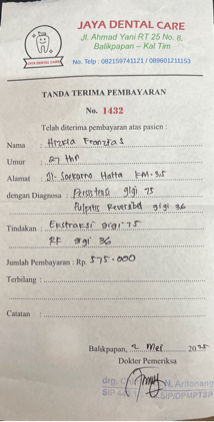 JAYA DENTAL CARE
Jl. Ahmad Yani RT 25 No. 8,
Balikpapan - Kal Tim
JAYA DENTAL CARE
No. Telp : 082159741121 / 089601211153
TANDA TERIMA PEMBAYARAN
No. 1432
Telah diterima pembayaran atas pasien :
Nama :
Umur : 27 thn
Alamat : Jl. Soekarno Hatta KM. 3,5
dengan Diagnosa : Persistensi gigi 75
Pulpitis Reversibel gigi 36
Tindakan : Ekstraksi gigi 75
RF gigi 36
Jumlah Pembayaran : Rp. 575.000
Terbilang :
Catatan :
Balikpapan, 2 Mei 2025
Dokter Pemeriksa
drg.
SIP